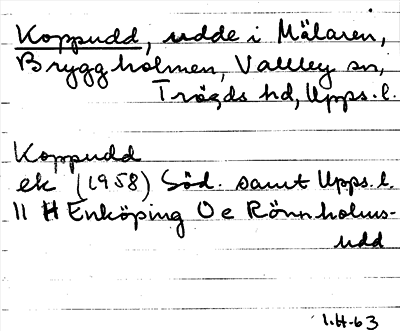 Koppudd, udde i Mälaren,
Bryggholmen, Vallby sn,
Trögds hd, Upps. l.
Koppudd
ek (1958) Söd. samt Upps. l.
11 H Enköping 0 e Rönnholms-
udd